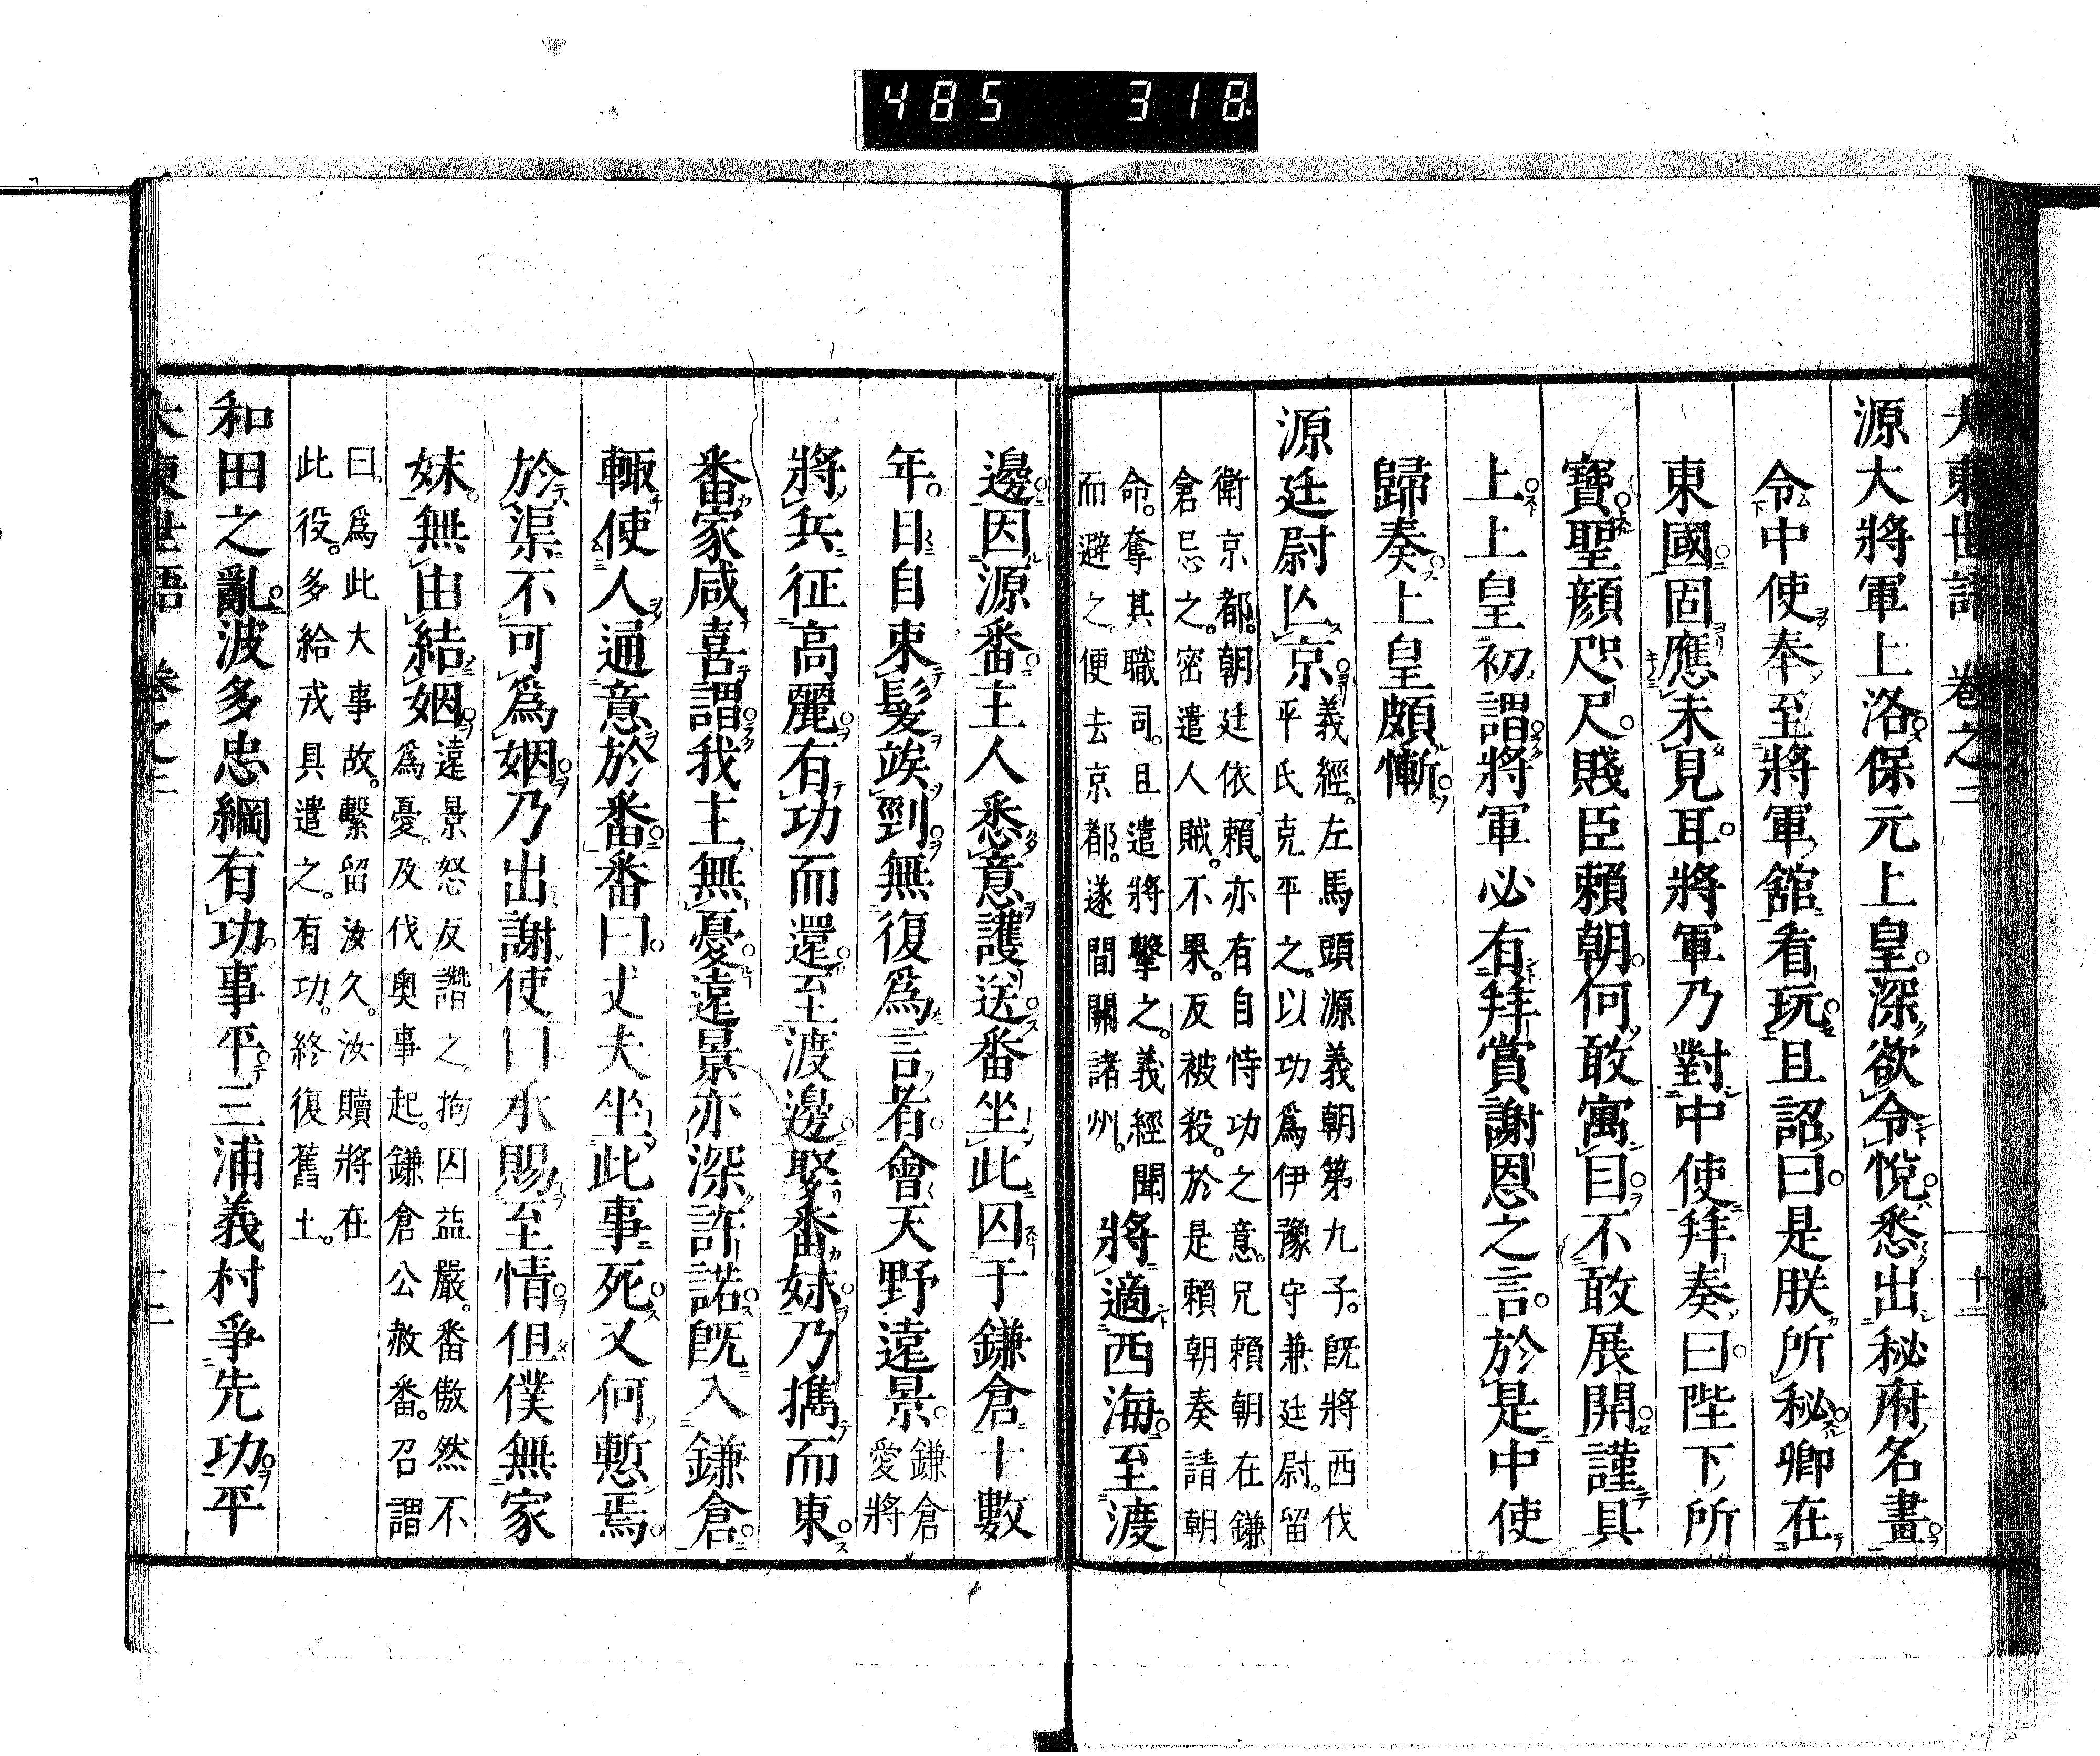 485 318
大東世語 卷之二 十二
源大將軍上洛保元上皇深欲令悅悉出秘府名畫
令中使奉至將軍舘看玩且詔曰是朕所秘卿在
東國固應未見耳將軍乃對中使拜奏曰陛下所
寶聖顔咫尺賤臣賴朝何敢寓目不敢展開謹具
上上皇初謂將軍必有拜賞謝恩之言於是中使
歸奏上皇頗慚
源廷尉亾京
義經左馬頭源義朝第九子既將西伐
平氏克平之以功爲伊豫守兼廷尉留
衛京都朝廷依賴亦有自恃功之意兄賴朝在鎌
倉忌之密遣人賊不果反被殺於是賴朝奏請朝
命奪其職司且遣將擊之義經聞
而避之便去京都遂間關諸州
將適西海至渡
邊因源番主人悉意護送番坐此囚于鎌倉十數
年日自束髮竢剄無復爲言者會天野遠景
鎌倉
愛將
將兵征高麗有功而還至渡邊娶番妹乃擕而東
番家咸喜謂我主無憂遠景亦深許諾既入鎌倉
輙使人通意於番番曰丈夫坐此事死又何慙焉
於渠不可爲姻乃出謝使曰承賜至情但僕無家
妹無由結姻
遠景怒反譖之拘囚益嚴番傲然不
爲憂及伐奥事起鎌倉公赦番召謂
曰爲此大事故繫留汝久汝贖將在
此役多給戎具遣之有功終復舊土
和田之亂波多忠綱有功事平三浦義村爭先功平
大東世語 卷之二